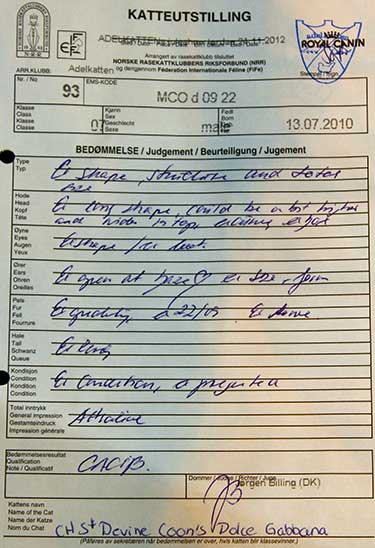 KATTEUTSTILLING
ADELKATTEN
21.11.2012
Arrangert av rasekattklubb tilsluttet
NORSKE RASEKATTKLUBBERS RIKSFORBUND (NRR)
og derigjennom Fédération Internationale Féline (FIFe)
ROYAL CANIN
Stempel / Sign
ARR.KLUBB: Adelkatten
Nr. / No 93
EMS-KODE MCO d 09 22
Klasse
Class
Klasse
Classe
07
Kjønn
Sex
Født
Born
13.07.2010
BEDØMMELSE / Judgement / Beurteiligung / Jugement
Type
Typ
Ex shape, structure and total
size
Hode
Head
Kopf
Tête
Ex long shape, could be a bit higher
and wider in top
Øyne
Eyes
Augen
Yeux
Ex shape
Ører
Ears
Ohren
Oreilles
Ex open at base Ex size
Pels
Fur
Fell
Fourrure
Ex quality 22/09
Hale
Tail
Schwanz
Queue
Ex long
Kondisjon
Condition
Kondition
Condition
Ex condition, presented
Total inntrykk
General impression
Gestamteindruck
Impression générale
Attractive
Bedømmelsesresultat
Qualification
Note / Qualificatif
CACIB
Dommer / Judge / Richter / Juge
Jørgen Billing (DK)
Kattens navn
Name of the Cat
Name der Katze
Nom du Chat
CH S* Devine Coon's Dolce Gabbana
(Påføres av sekretæren når bedømmelsen er over, hvis katten blir klassevinner.)